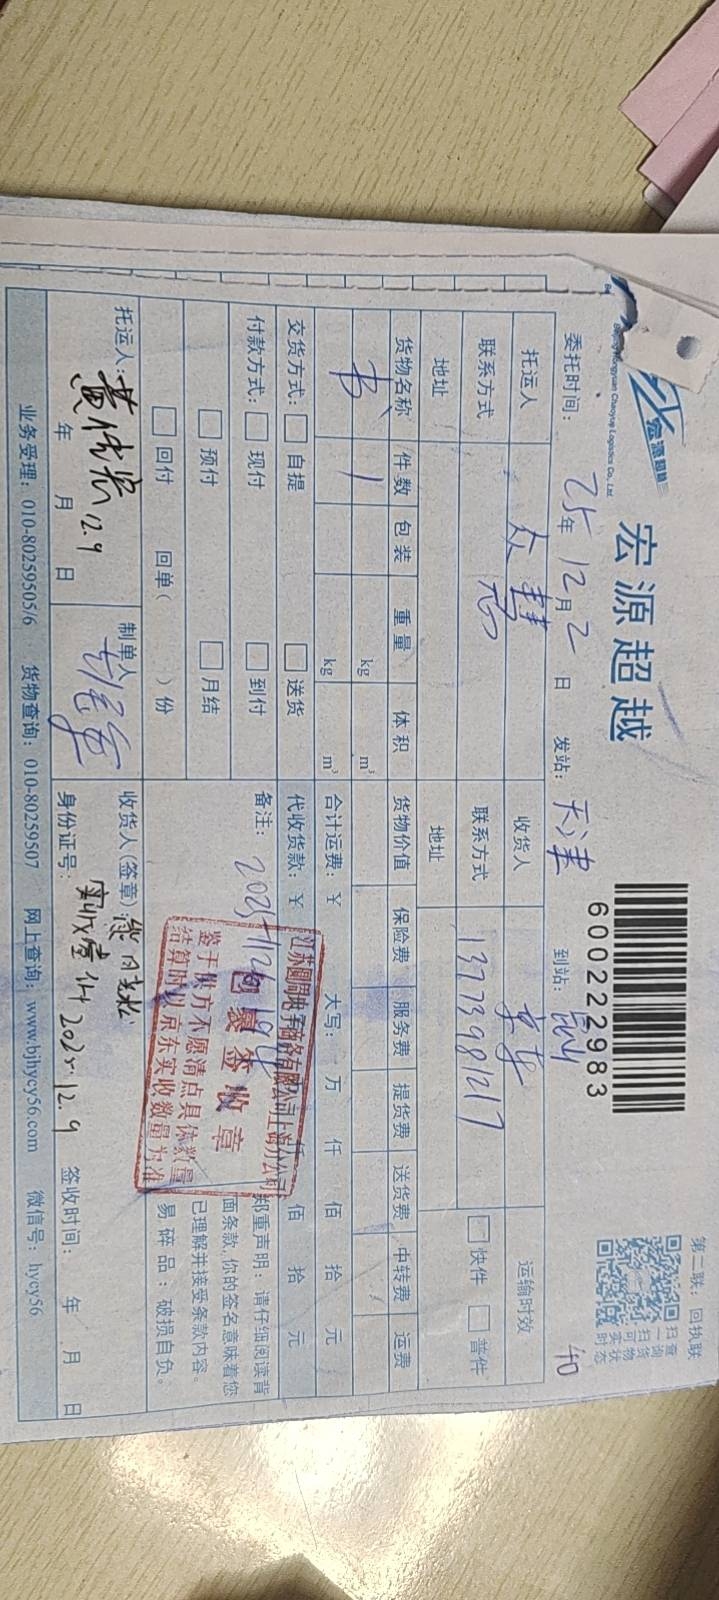 宏源超越
宏源超越
Chaoyue Logistics Co., Ltd.
600222983
第二联：回执联
扫一扫可实时
查询货物状态
委托时间： 25年12月2日 发站： 天津 到站： 昆山 40
托运人 收货人 京东 运输时效
联系方式 联系方式 13773981217 快件 普件
地址 地址
货物名称 件数 包装 重量 体积 货物价值 保险费 服务费 提货费 送货费 中转费 运费
书 1 kg m³
kg m³ 合计运费：￥ 大写： 万 仟 佰 拾 元
交货方式： 自提 送货 代收货款：￥ 佰 拾 元
付款方式： 现付 到付 备注：
预付 月结
回付 回单（ ）份
郑重声明：请仔细阅读背
面条款,你的签名意味着您
已理解并接受条款内容。
易碎品：破损自负。
江苏圆周电子商务有限公司上海分公司
包裹签收章
鉴于供方不愿清点具体数量
结算时以京东实收数量为准
托运人： 12.9 制单人 收货人(签章)
年 月 日 身份证号： 实收壹件 2025.12.9 签收时间： 年 月 日
业务受理：010-80259505/6 货物查询：010-80259507 网上查询：www.bjhycy56.com 微信号：hycy56